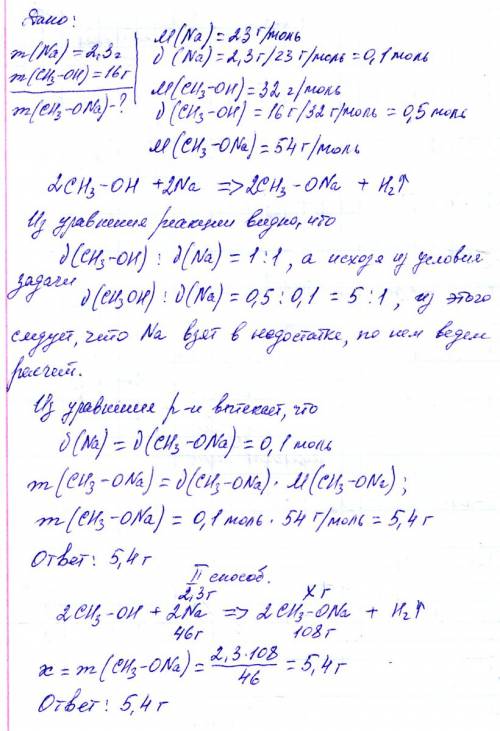 Дано:
m(Na) = 2,3г
m(CH₃-OH) = 16г
m(CH₃-ONa) - ?
M(Na) = 23 г/моль
ϑ(Na) = 2,3г/23 г/моль = 0,1 моль
M(CH₃-OH) = 32 г/моль
ϑ(CH₃-OH) = 16 г/32 г/моль = 0,5 моль
M(CH₃-ONa) = 54 г/моль
2CH₃-OH + 2Na => 2CH₃-ONa + H₂↑
Из уравнения реакции видно, что
ϑ(CH₃-OH) : ϑ(Na) = 1 : 1, а исходя из условия
задачи
ϑ(CH₃OH) : ϑ(Na) = 0,5 : 0,1 = 5 : 1, из этого
следует, что Na взят в недостатке, по нем ведем
расчит.
Из уравнения р-и вытекает, что
ϑ(Na) = ϑ(CH₃-ONa) = 0,1 моль
m(CH₃-ONa) = ϑ(CH₃-ONa) · M(CH₃-ONa);
m(CH₃-ONa) = 0,1 моль · 54 г/моль = 5,4 г
Ответ: 5,4 г
II способ.
2,3г xг
2CH₃-OH + 2Na => 2CH₃-ONa + H₂↑
46г 108г
x = m(CH₃-ONa) = 2,3·108/46 = 5,4 г
Ответ: 5,4 г